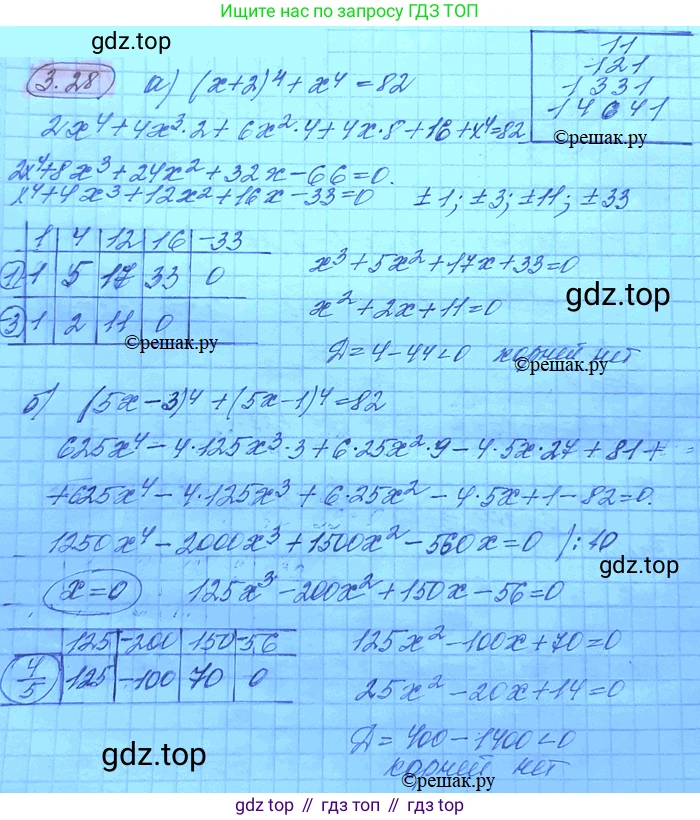 Ищите нас по запросу ГДЗ ТОП
gdz.top
3.28 а) (x+2)⁴ + x⁴ = 82
11
121
1331
14641
©reшак.ру
2x⁴+4x³·2+6x²·4+4x·8+16+x⁴=82
2x⁴+8x³+24x²+32x-66=0.
x⁴+4x³+12x²+16x-33=0 ±1; ±3; ±11; ±33
1 4 12 16 -33
1 1 5 17 33 0
-3 1 2 11 0
©reшак.ру
x³+5x²+17x+33=0
gdz.top
x²+2x+11=0
Д=4-44<0 корней нет
©reшак.ру
б) (5x-3)⁴+(5x-1)⁴=82
625x⁴-4·125x³·3+6·25x²·9-4·5x·27+81+
+625x⁴-4·125x³+6·25x²-4·5x+1-82=0.
1250x⁴-2000x³+1500x²-560x=0 /:10
gdz.top
©reшак.ру
x=0 125x³-200x²+150x-56=0
125 -200 150 -56
4/5 125 -100 70 0
125x²-100x+70=0
25x²-20x+14=0
Д=400-1400<0
корней нет
gdz.top
©reшак.ру
gdz top // гдз топ // gdz.top